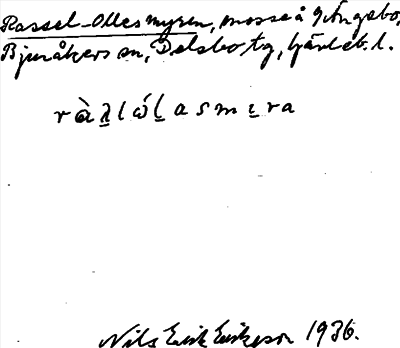 Rassel-Ollesmyren, mosse å g. Ängebo,
Bjuråkers sn, Delsbo tg, Gävleb. l.
ràʂlólasmira
Nils Erik Eriksson 1936.